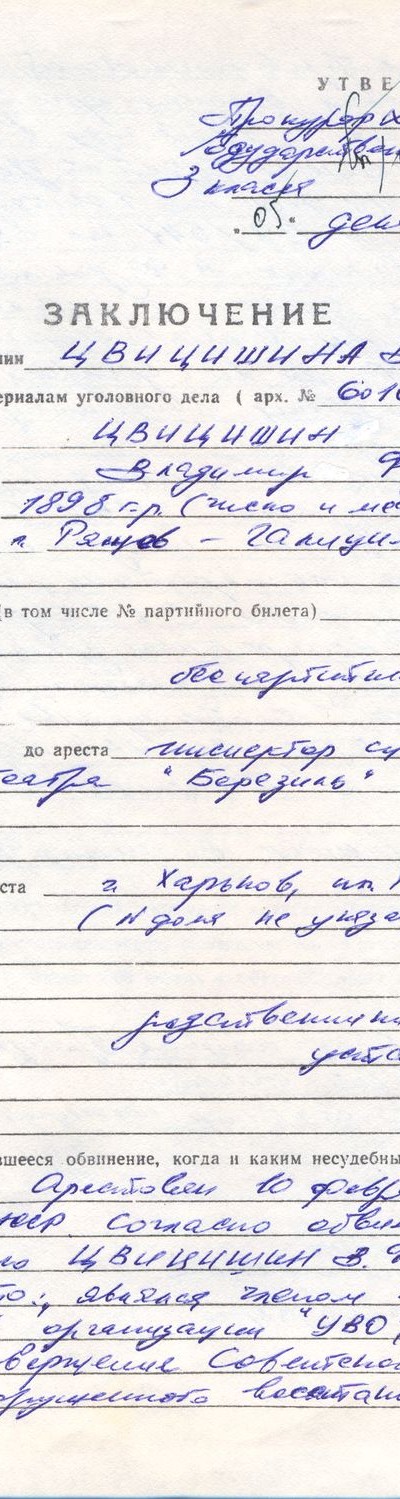 УТВЕ
Прокурор Х
Государствен
3 класса
"05" дек
ЗАКЛЮЧЕНИЕ
нии ЦВИЦИШИНА В
ериалам уголовного дела ( арх. № 6010
ЦВИЦИШИН
Владимир Ф
1898 г.р. (число и ме
г. Ряшев – Галици
(в том числе № партийного билета)
беспартийн
до ареста инспектор су
театра "Березиль"
ста г. Харьков, ул.
(N дома не указа
родственни
уста
вшееся обвинение, когда и каким несудебны
Арестован 10 февр
согласно обви
ЦВИЦИШИН В. Ф
то:, являлся членом
организации "УВО
вержение Советско
оруженного восстан